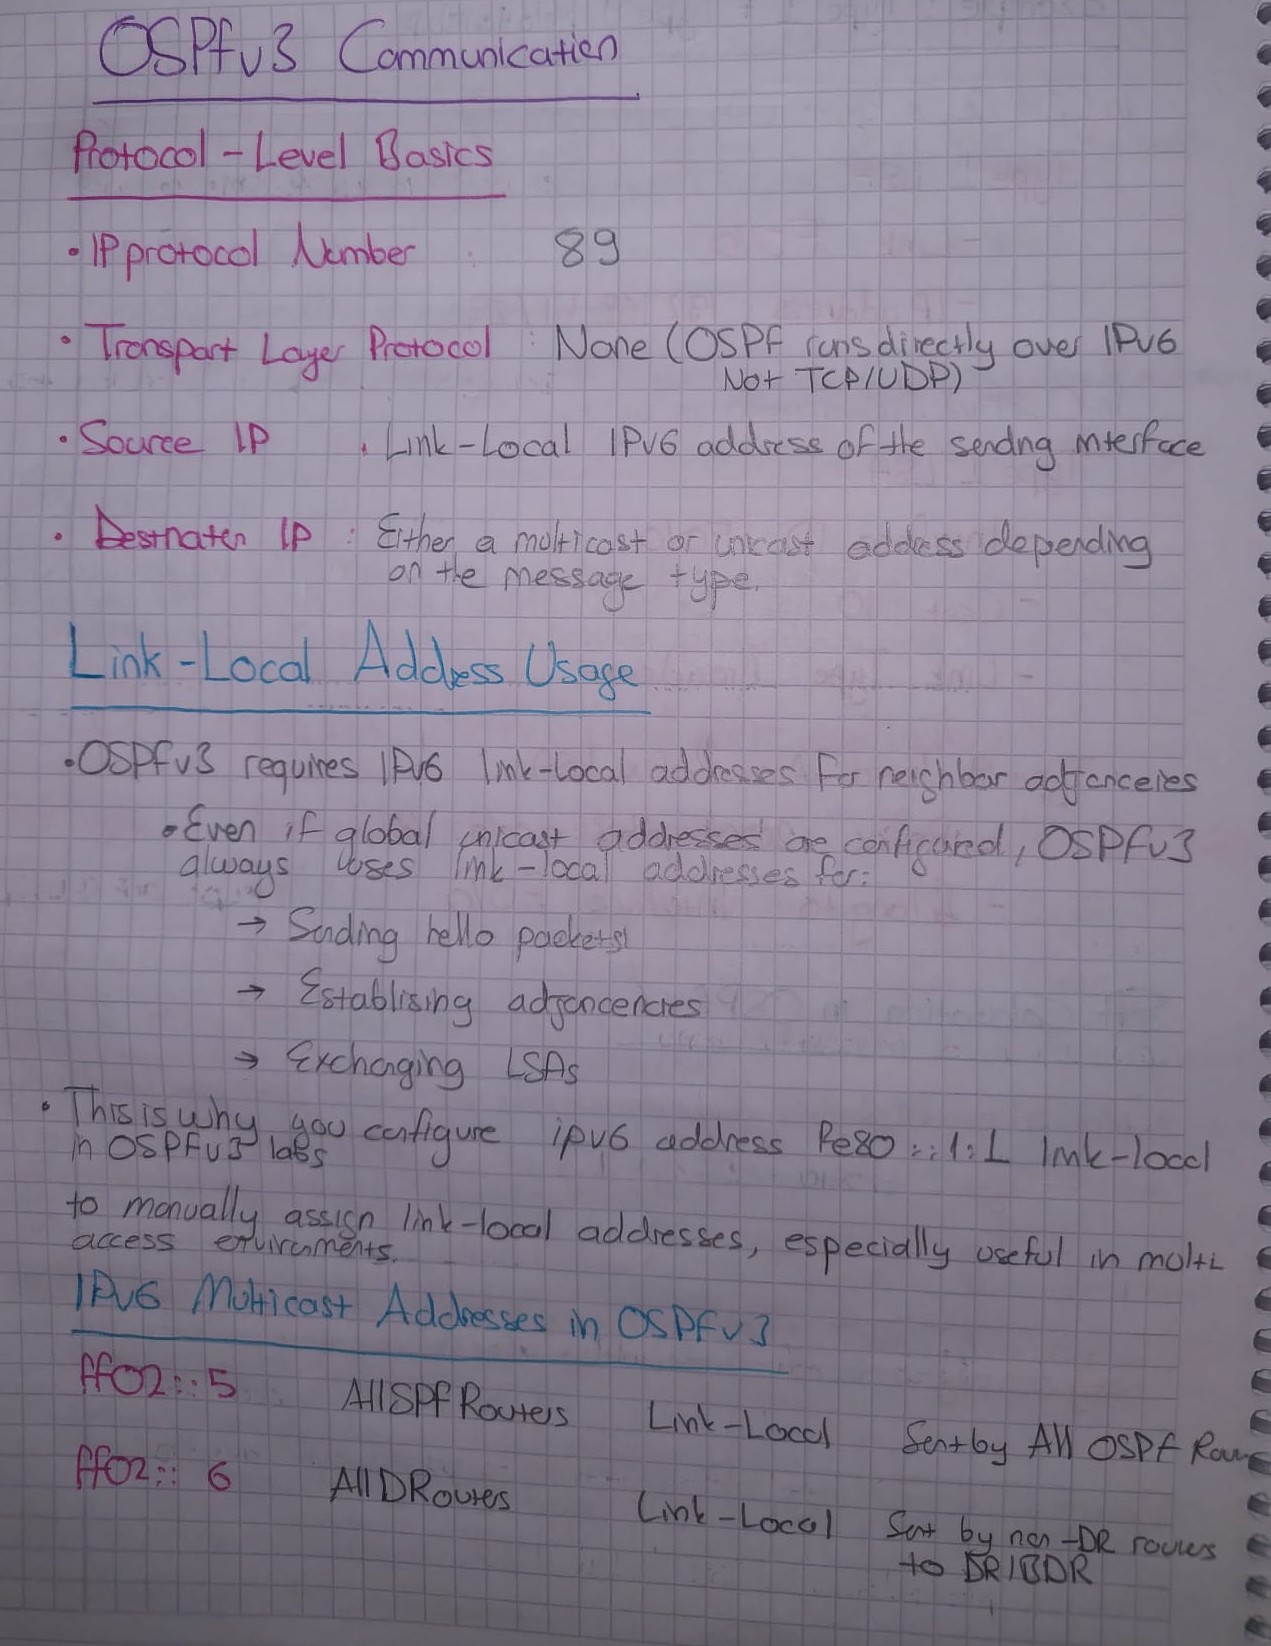 OSPFv3 Communication
Protocol-Level Basics
• IP protocol Number : 89
• Transport Layer Protocol : None (OSPF runs directly over IPv6
Not TCP/UDP)
• Source IP : Link-Local IPv6 address of the sending interface
• Destination IP : Either a multicast or unicast address depending
on the message type.
Link-Local Address Usage
• OSPFv3 requires IPv6 link-local addresses for neighbor adjanceies
• Even if global unicast addresses are configured, OSPFv3
always uses link-local addresses for:
→ Sending hello packets
→ Establising adjancencies
→ Exchanging LSAs
• This is why you configure ipv6 address fe80::1:1 link-local
in OSPFv3 labs
to manually assign link-local addresses, especially useful in multi
access enviroments.
IPv6 Multicast Addresses in OSPFv3
ff02::5 AllSPFRouters Link-Local Sent by All OSPF Rou
ff02::6 AllDRoutes Link-Local Sent by non-DR routers
to DR/BDR